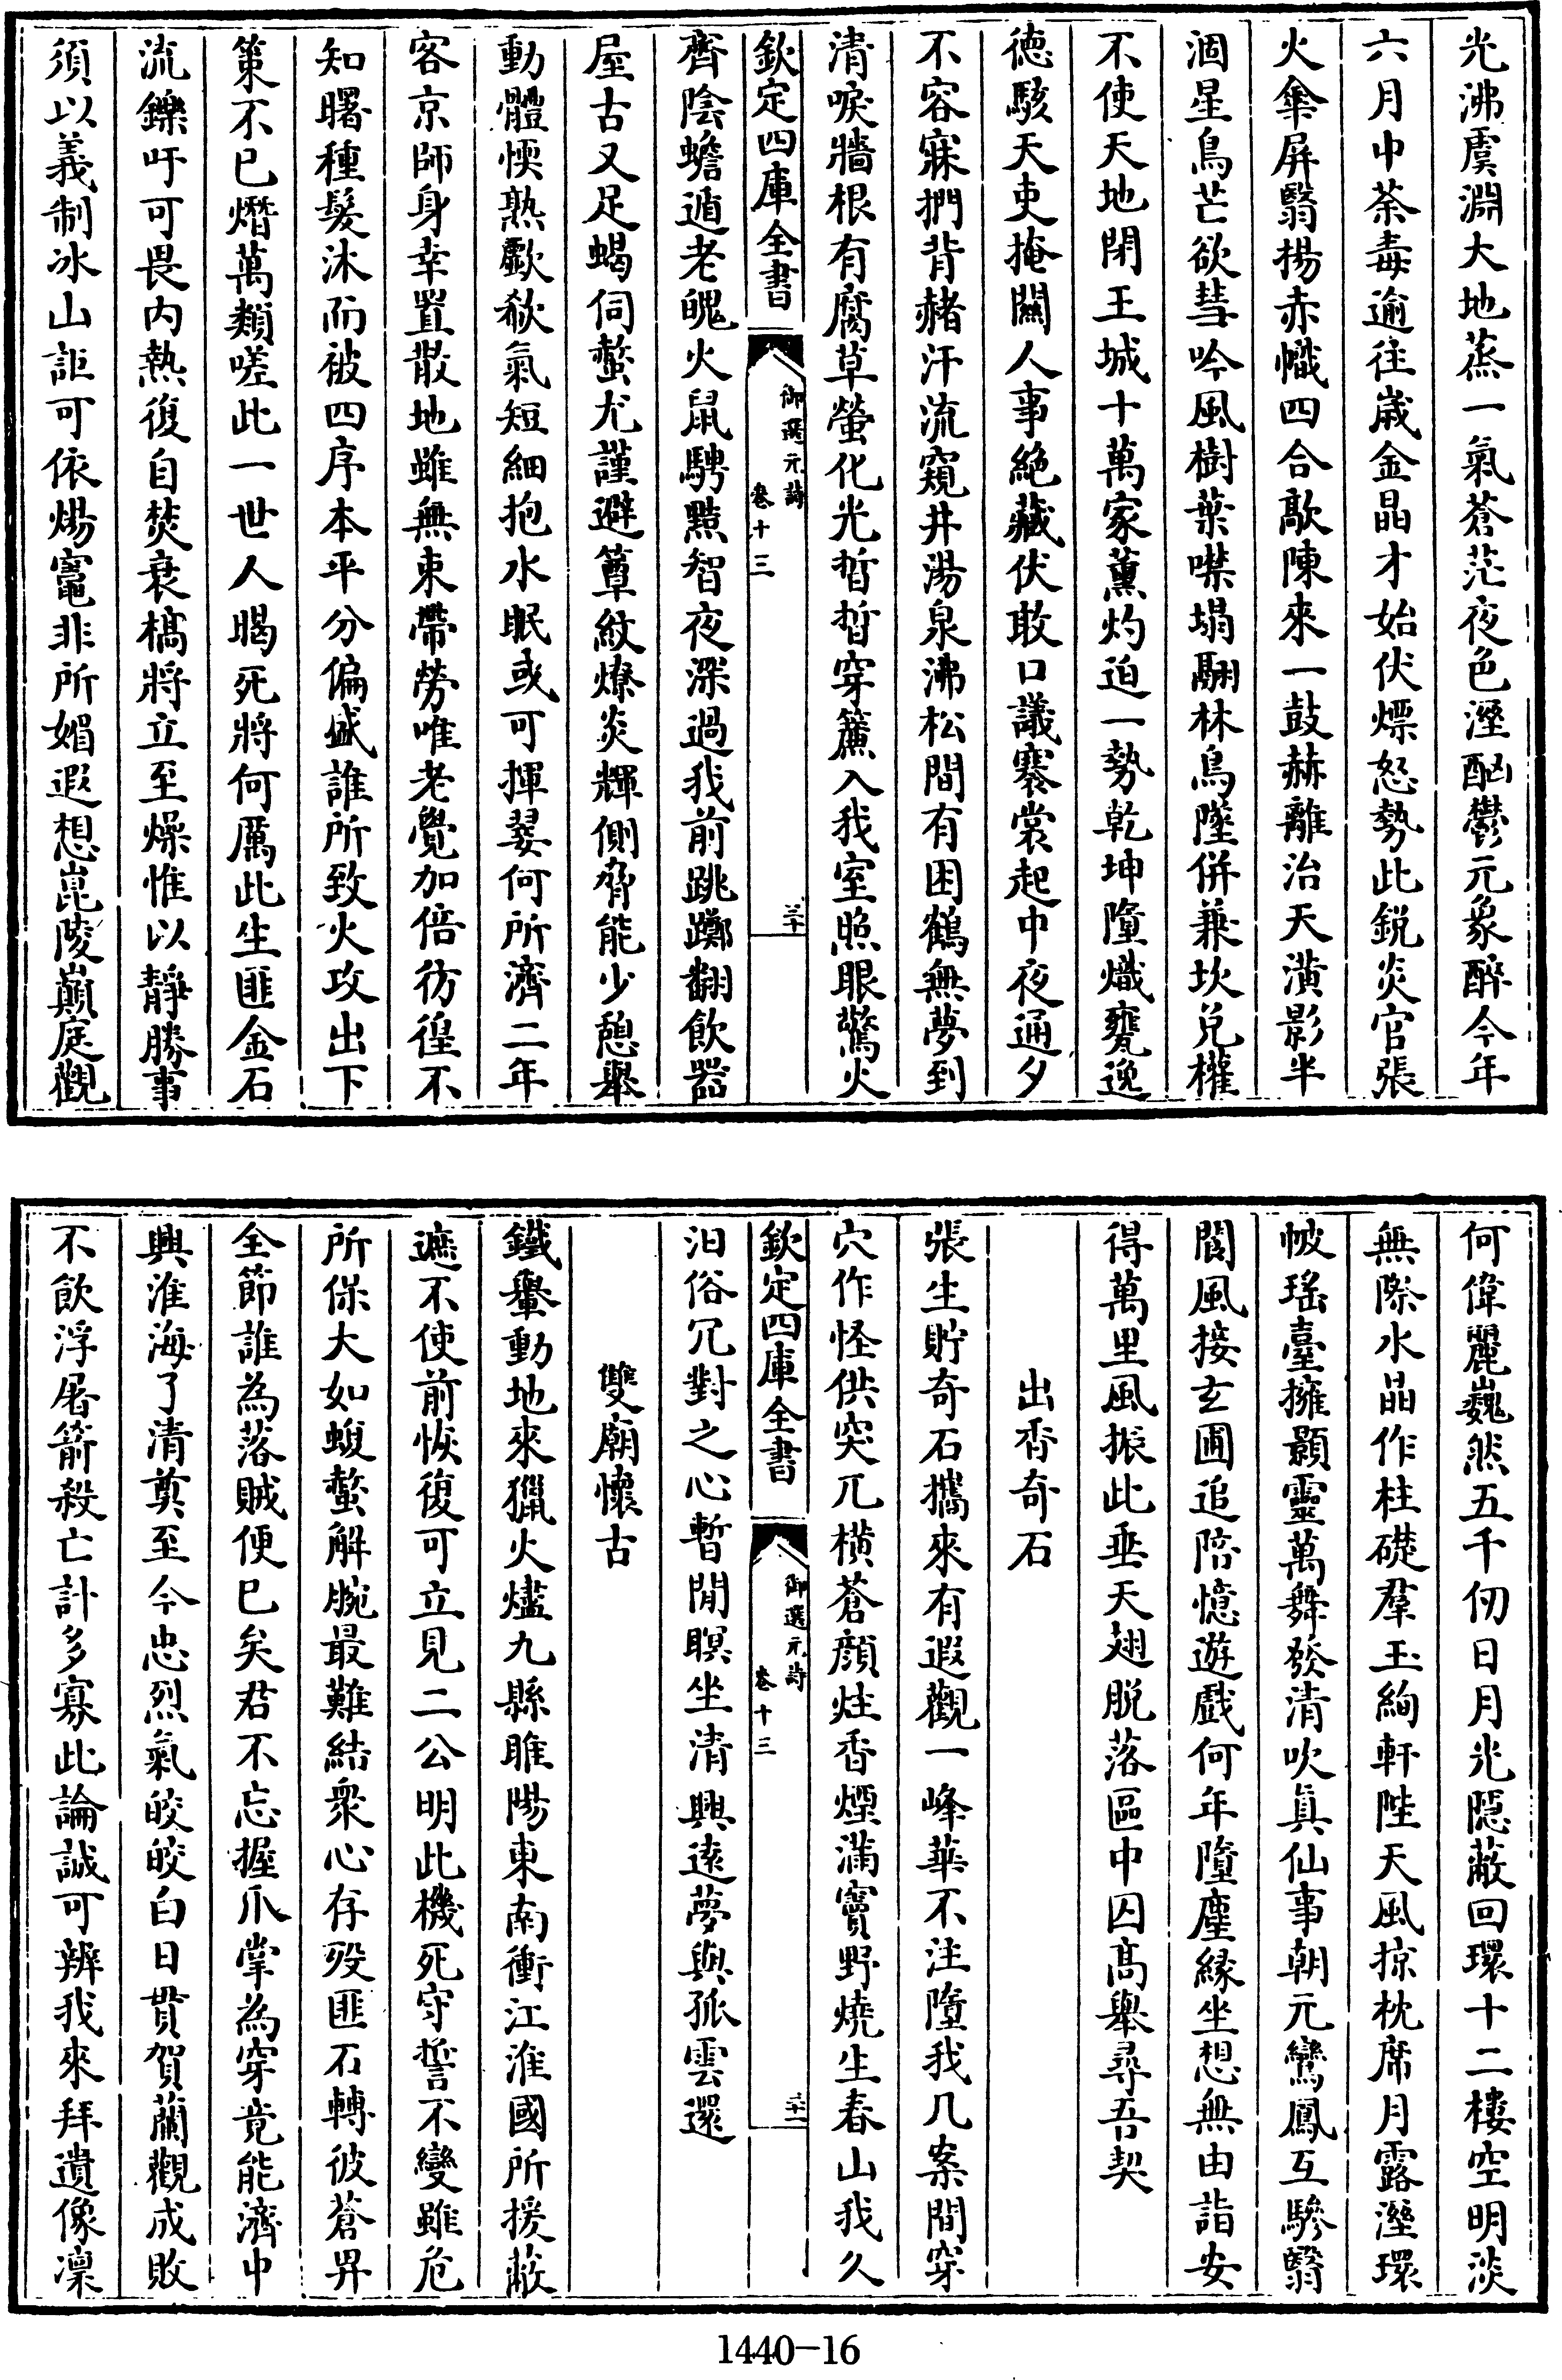 光沸虞淵大地蒸一氣蒼茫夜色溼酗鬱元象醉今年
六月中荼毒逾往歳金晶才始伏熛怒勢此銳炎官張
火傘屏翳揚赤幟四合歊陳來一鼓赫離治天潢影半
涸星鳥芒欲彗吟風樹葉噤塌翮林鳥墜併兼坎兌權
不使天地閉王城十萬家薰灼迫一勢乾坤墮熾甕逸
徳駭天吏掩關人事絶藏伏敢口議褰裳起中夜通夕
不容寐捫背赭汗流窺井湯泉沸松間有困鶴無夢到
清唳牆根有腐草螢化光晢晢穿簾入我室照眼驚火
欽定四庫全書
御選元詩
卷十三
三十
齊陰蟾遁老魄火鼠騁黠智夜深過我前跳躑翻飲器
屋古又足蝎伺螫尤謹避簟紋燎炎輝側脅能少憩舉
動體愞熟歠欷氣短細抱水眠或可揮翣何所濟二年
客京師身幸置散地雖無束帶勞唯老覺加倍彷徨不
知曙種髮沐而被四序本平分偏盛誰所致火攻出下
策不已熸萬類嗟此一世人暍死將何厲此生匪金石
流鑠吁可畏内熱復自焚衰槁將立至燥惟以靜勝事
須以義制冰山詎可依煬竈非所媚遐想崑陵巔庭觀
何偉麗巍然五千仞日月光隠蔽回環十二樓空明淡
無際水晶作柱礎羣玉絢軒陛天風掠枕席月露溼環
帔瑤臺擁顥靈萬舞發清吹真仙事朝元鸞鳳互驂翳
閬風接玄圃追陪憶遊戲何年墮塵緣坐想無由詣安
得萬里風振此垂天翅脱落區中囚髙舉尋吾契
出香竒石
張生貯奇石攜來有遐觀一峰華不注墮我几案間穿
穴作怪供突兀横蒼顔炷香煙滿竇野燒生春山我久
欽定四庫全書
御選元詩
卷十三
三十一
汨俗冗對之心暫閒瞑坐清興遠夢與孤雲還
雙廟懷古
鐵轝動地來獵火燼九縣睢陽東南衝江淮國所援蔽
遮不使前恢復可立見二公明此機死守誓不變雖危
所保大如蝮螫解腕最難結衆心存殁匪石轉彼蒼畀
全節誰為落賊便已矣君不忘握爪掌為穿竟能濟中
興淮海了清奠至今忠烈氣皎皎白日貫賀蘭觀成敗
不飲浮屠箭殺亡計多寡此論誠可辨我來拜遺像凜
1440-16